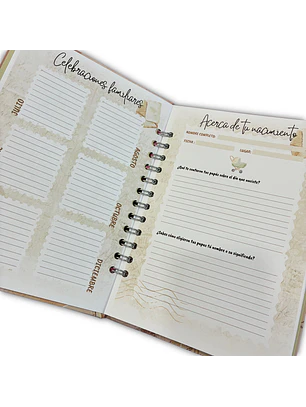 Celebraciones familiares
JULIO
AGOSTO
OCTUBRE
DICIEMBRE
Acerca de tu nacimiento
NOMBRE COMPLETO:
FECHA:
LUGAR:
¿Qué te contaron tus papás sobre el día que naciste?
¿Sabes cómo eligieron tus papás tú nombre o su significado?